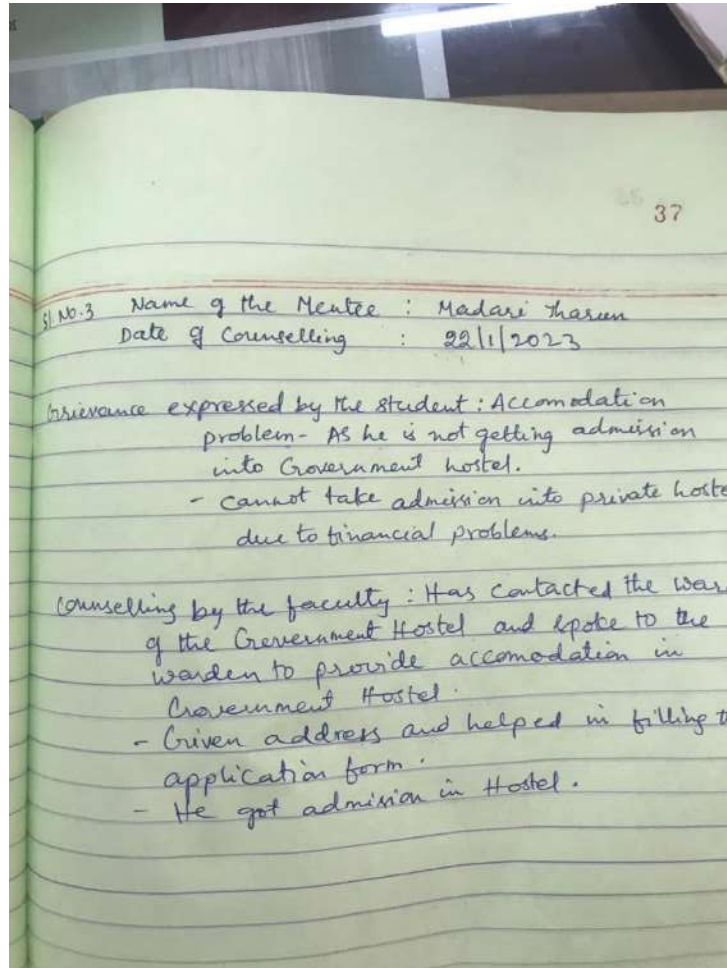 37
Sl. No.3 Name of the Mentee : Madari Tharun
Date of Counselling : 22/1/2023
Grievance expressed by the student : Accomodation
problem - As he is not getting admission
into Government hostel.
- cannot take admission into private hoste
due to financial problems.
Counselling by the faculty : Has contacted the war
of the Government Hostel and spoke to the
warden to provide accomodation in
Government Hostel.
- Given address and helped in filling t
application form.
- He got admision in Hostel.